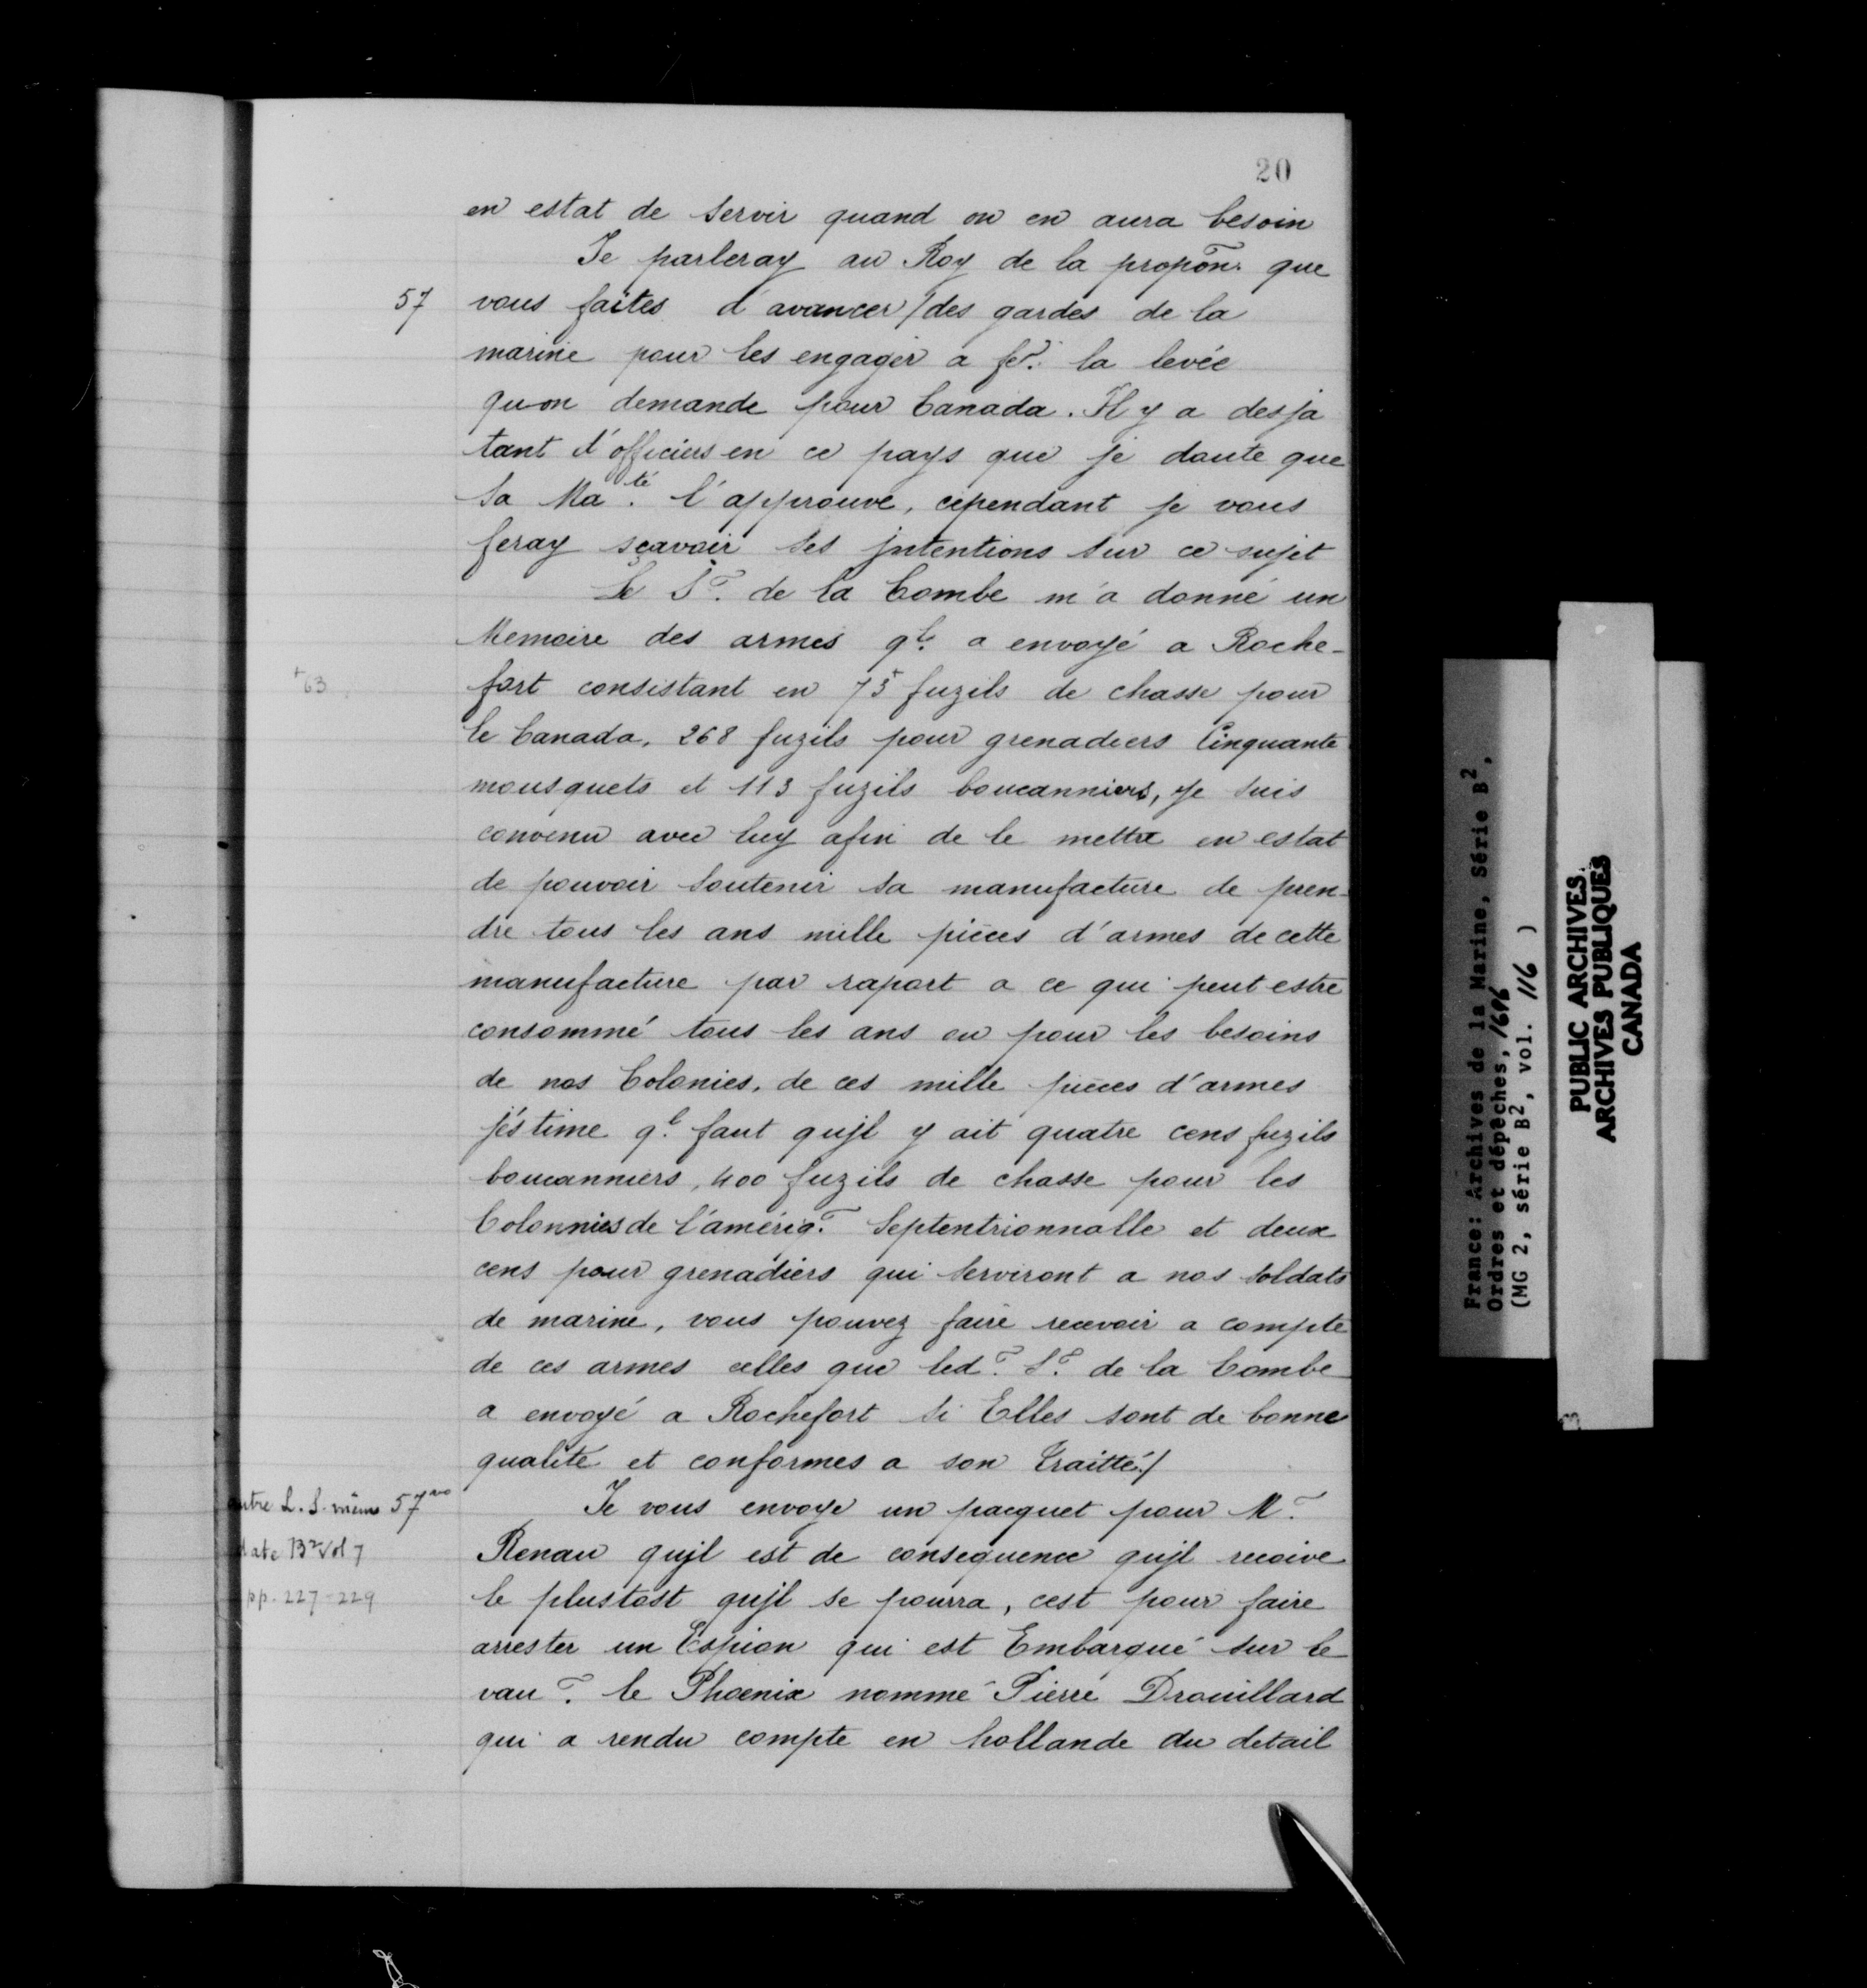 20
en estat de servir quand on en aura besoin
Je parleray au Roy de la propõn. que
57 vous faites d'avancer / des gardes de la
marine pour les engager a fe. la levée
qu'on demande pour Canada. Il y a desja
tant d'officiers en ce pays que je doute que
Sa Ma.té l'approuve, cependant je vous
feray sçavoir ses jntentions sur ce sujet
Le Sr. de la Combe m'a donné un
Memoire des armes ql. a envoyé a Roche-
+63 fort consistant en 75 fuzils de chasse pour
le Canada, 268 fuzils pour grenadiers Cinquante
mousquets et 113 fuzils boucanniers, je suis
convenu avec luy afin de le mettre en estat
de pouvoir soutenir sa manufacture de pren-
dre tous les ans mille pièces d'armes de cette
manufacture par raport a ce qui peut estre
consommé tous les ans ou pour les besoins
de nos Colonies, de ces mille pièces d'armes
j'estime ql. faut qujl y ait quatre cens fuzils
boucanniers, 400 fuzils de chasse pour les
Colonnies de l'amériq. Septentrionnalle et deux
cens pour grenadiers qui serviront a nos soldats
de marine, vous pouvez faire recevoir a compte
de ces armes celles que led. Sr. de la Combe
a envoyé a Rochefort si Elles sont de bonne
qualité et conformes a son Traitté./
autre L. S. même 57vo Je vous envoye un pacquet pour Mr.
date B2 Vol 7 Renau qujl est de consequence qujl recoive
pp. 227-229 le plustost qujl se pourra, cest pour faire
arrester un Espion qui est Embarqué sur le
vau. le Phoenix nommé Pierre Drouillard
qui a rendu compte en hollande du detail
France: Archives de la Marine, Série B2,
Ordres et dépêches, 1696
(MG 2, série B2, vol. 116 )
PUBLIC ARCHIVES
ARCHIVES PUBLIQUES
CANADA